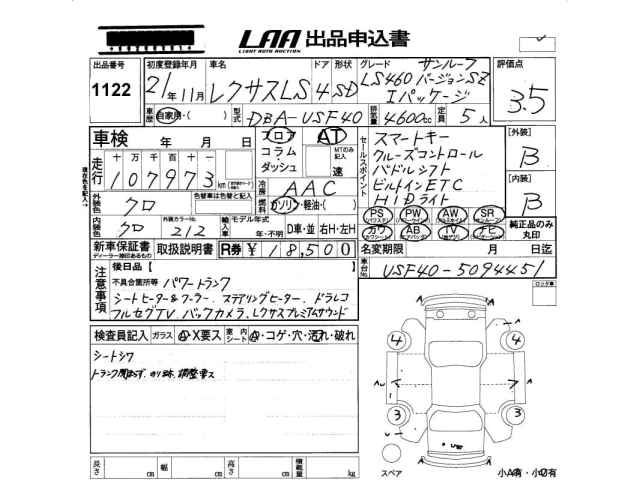 LAA 出品申込書
LIGHT AUTO AUCTION
出品番号 初度登録年月 車名 ドア 形状 グレード サンルーフ 評価点
1122 21年11月 レクサスLS 4 SD LS460 バージョンSZ Iパッケージ 3.5
車歴 自家用・( ) 型式 DBA-USF40 排気量 4600cc 定員 5人
車検 年 月 日 フロア コラム・ダッシュ AT MTのみ記入 速
セールスポイント スマートキー
クルーズコントロール
パドルシフト
ビルトインETC
HIDライト
【外装】 B
【内装】 B
走行 十万千百十 107973 km
現在色を記入→
冷房 AAC
外装色 クロ 色替車は色替と記入 燃料 ガソリン・軽油・( )
PS PW AW SR
カワ AB TV ナビ
純正品のみ丸印
内装色 クロ 外装カラーNo. 212 輸入車 モデル年式 年・不明 D車・並 右H・左H
新車保証書 取扱説明書 R券 ¥18,500
ディーラー捺印あるもの
名変期限 月 日迄
車台No. USF40-5094451
注意事項 後日品【 】
不具合箇所等 パワートランク
シートヒーター&クーラー、ステアリングヒーター、ドラレコ
フルセグTV、バックカメラ、レクサスプレミアムサウンド
ロック車
検査員記入 ガラス A・X要ス 室内シート A・コゲ・穴・汚れ・破れ
シートシワ
4 4
3 3
長さ cm 幅 cm 高さ cm 積載量 kg
スペア
小A有・小U有